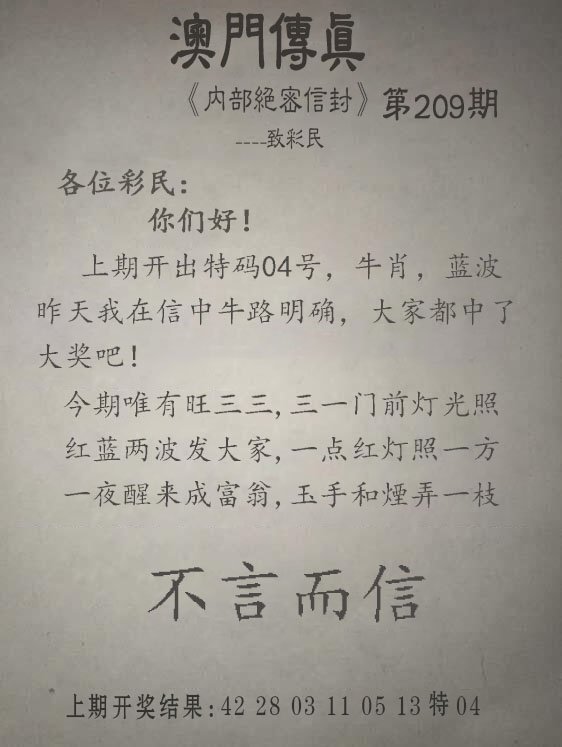 澳門傳眞
《内部絕密信封》第209期
----致彩民
各位彩民：
你们好！
上期开出特码04号，牛肖，蓝波
昨天我在信中牛路明确，大家都中了
大奖吧！
今期唯有旺三三,三一门前灯光照
红蓝两波发大家,一点红灯照一方
一夜醒来成富翁,玉手和煙弄一枝
不言而信
上期开奖结果:42 28 03 11 05 13 特 04